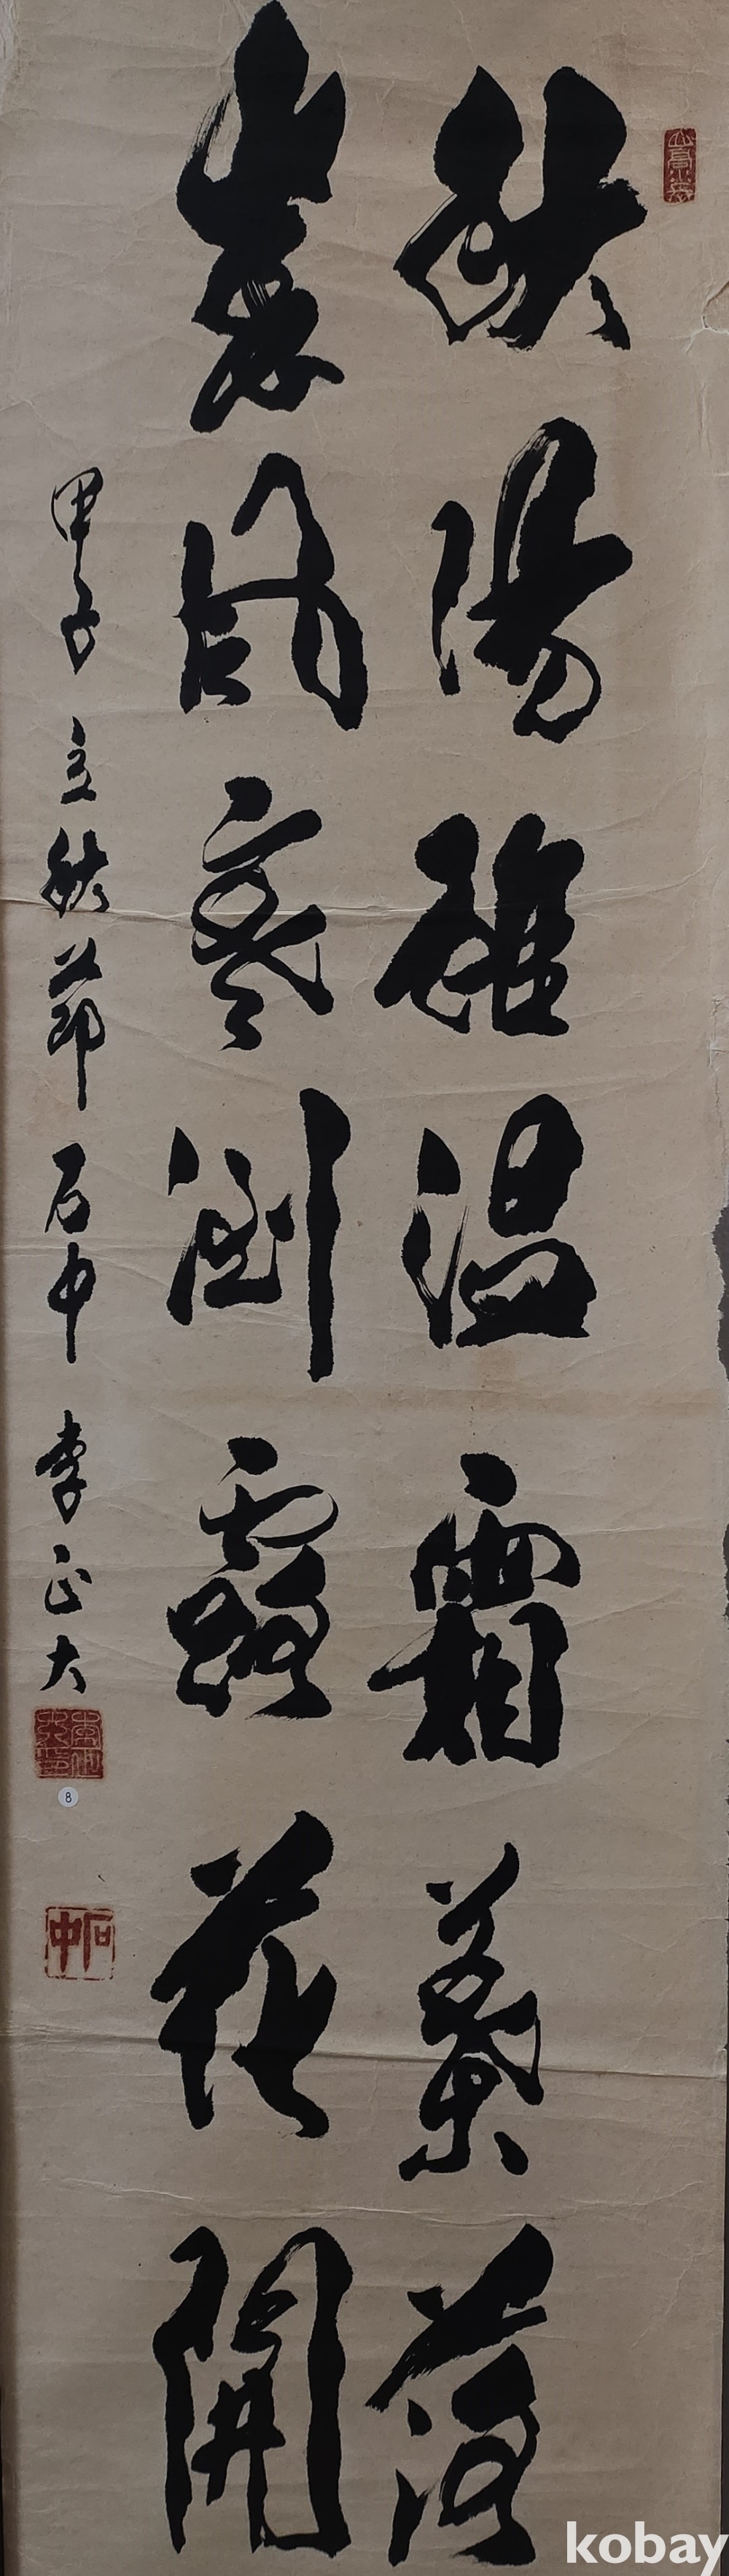 秋陽雖温霜葉落
風寒露花開
甲子 立秋節 石中 李正大
8
石中
kobay